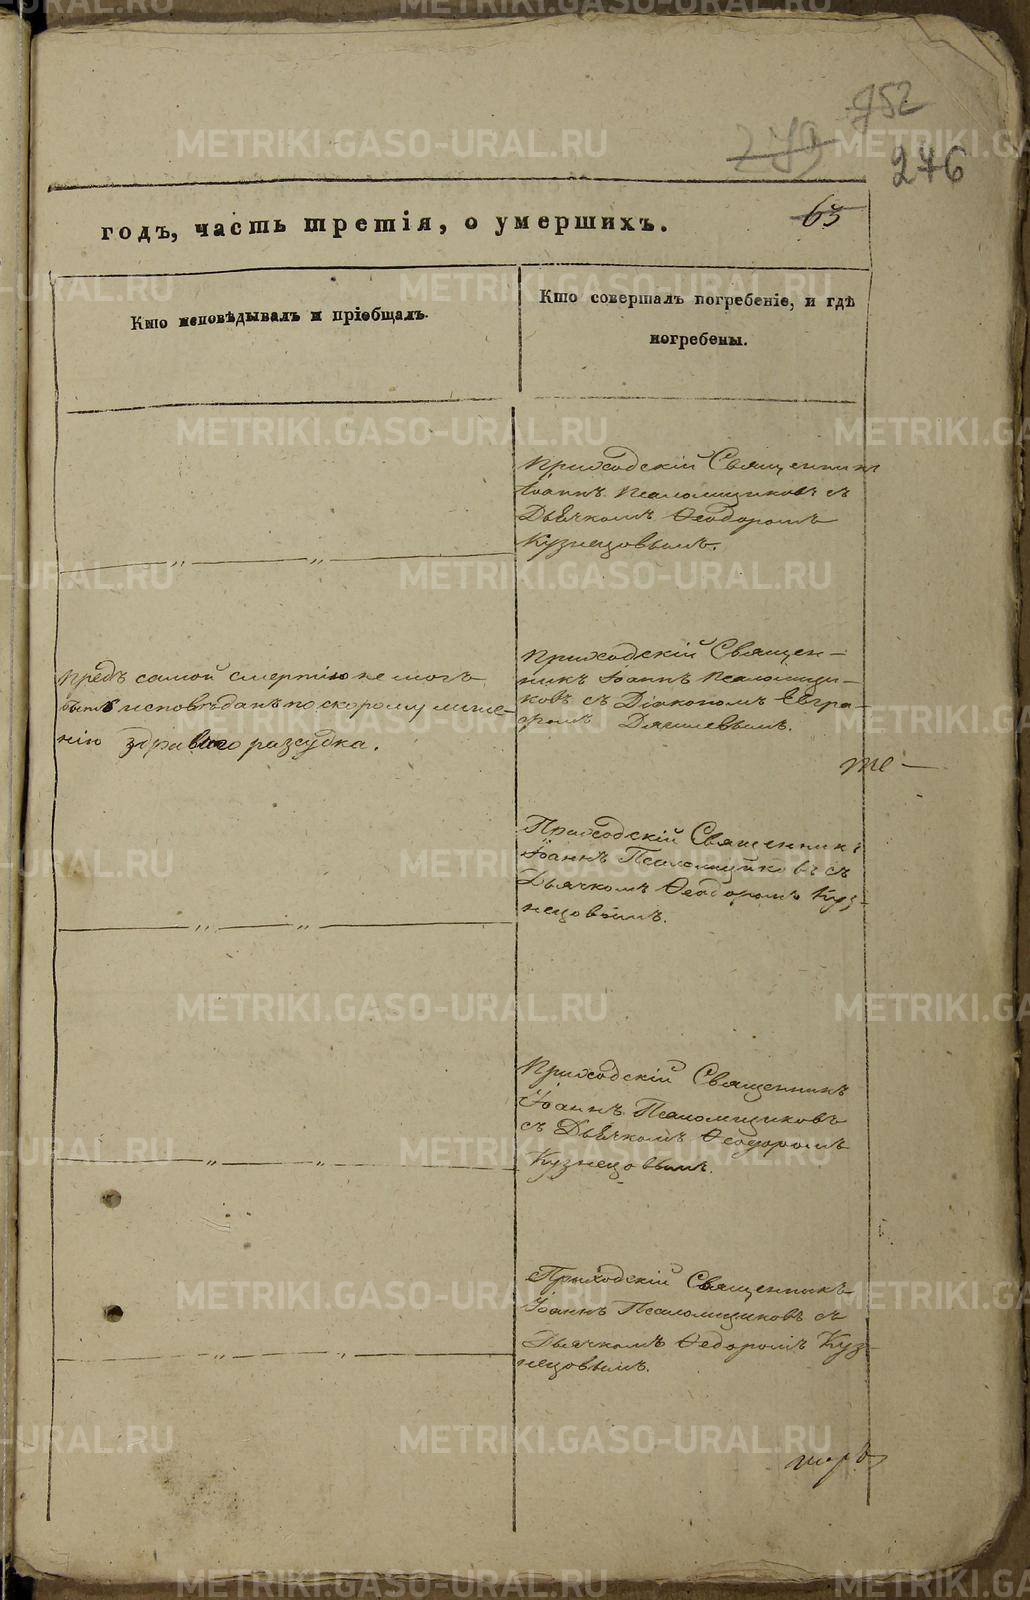 952
279
276
65
годъ, часть третія, о умершихъ.
Кто исповѣдывалъ и пріобщалъ.
Кто совершалъ погребеніе, и гдѣ
погребены.
Приходскій Священникъ
Іоаннъ Псаломщиковъ съ
Дьячкомъ Ѳеодоромъ
Кузнецовымъ.
Предъ самой смертію не могъ
быть исповѣданъ по скорому лише-
нію здраваго разсудка.
Приходскій Священ-
никъ Іоаннъ Псаломщи-
ковъ съ Діакономъ Евгра-
фомъ
Приходскій Священникъ
Іоаннъ Псаломщиковъ съ
Дьячкомъ Ѳеодоромъ Куз-
нецовымъ.
Приходскій Священникъ
Іоаннъ Псаломщиковъ
съ Дьячкомъ Ѳеодоромъ
Кузнецовымъ.
Приходскій Священникъ
Іоаннъ Псаломщиковъ съ
Дьячкомъ Ѳедоромъ Куз-
нецовымъ.
METRIKI.GASO-URAL.RU